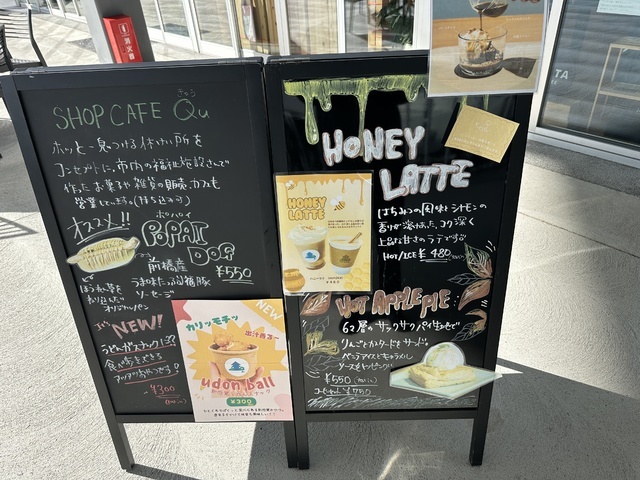 SHOP CAFE Qu
きゅう
ホッと一息つける休けい所を
コンセプトに、市内の福祉施設さんで
作ったお菓子や雑貨の販売、カフェも
営業しています(持ち込み可)
オススメ!!
ポパイ
POPAI
DOG
¥550
前橋産
うまみたっぷり福豚
ソーセージ
ほうれん草を
オリジナルパン
NEW!
食べ歩きできる
¥300
NEW
カリッモチッ
出汁香る〜
udon ball
¥300
HONEY
LATTE
はちみつの風味とシナモンの
香りが溶け込んだ、コク深く
上品な甘さのラテです
HOT/ICE ¥480
HONEY
LATTE
HOT APPLE PIE
62層のサクサクパイ生地で
りんごとカスタードをサンド。
バニラアイスとキャラメル
ソースをトッピング!
¥550